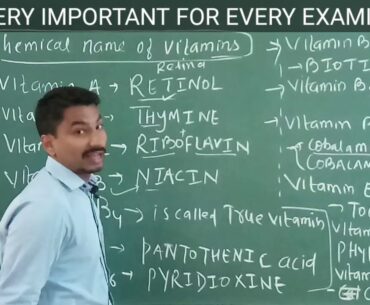 ERY IMPORTANT FOR EVERY EXAMI
hemical name of vitamins
Retina
Vitamin A → RETINOL
THYMINE
RIBOFLAVIN
NIACIN
B4 → is called True vitamin
PANTOTHENIC acid
6 → PYRIDIOXINE
Vitamin B
→ BIOTI
→ Vitamin B
Vitamin B
→ Cobalam
COBALAM
Vitamin
To
vita
PHYL
vitam